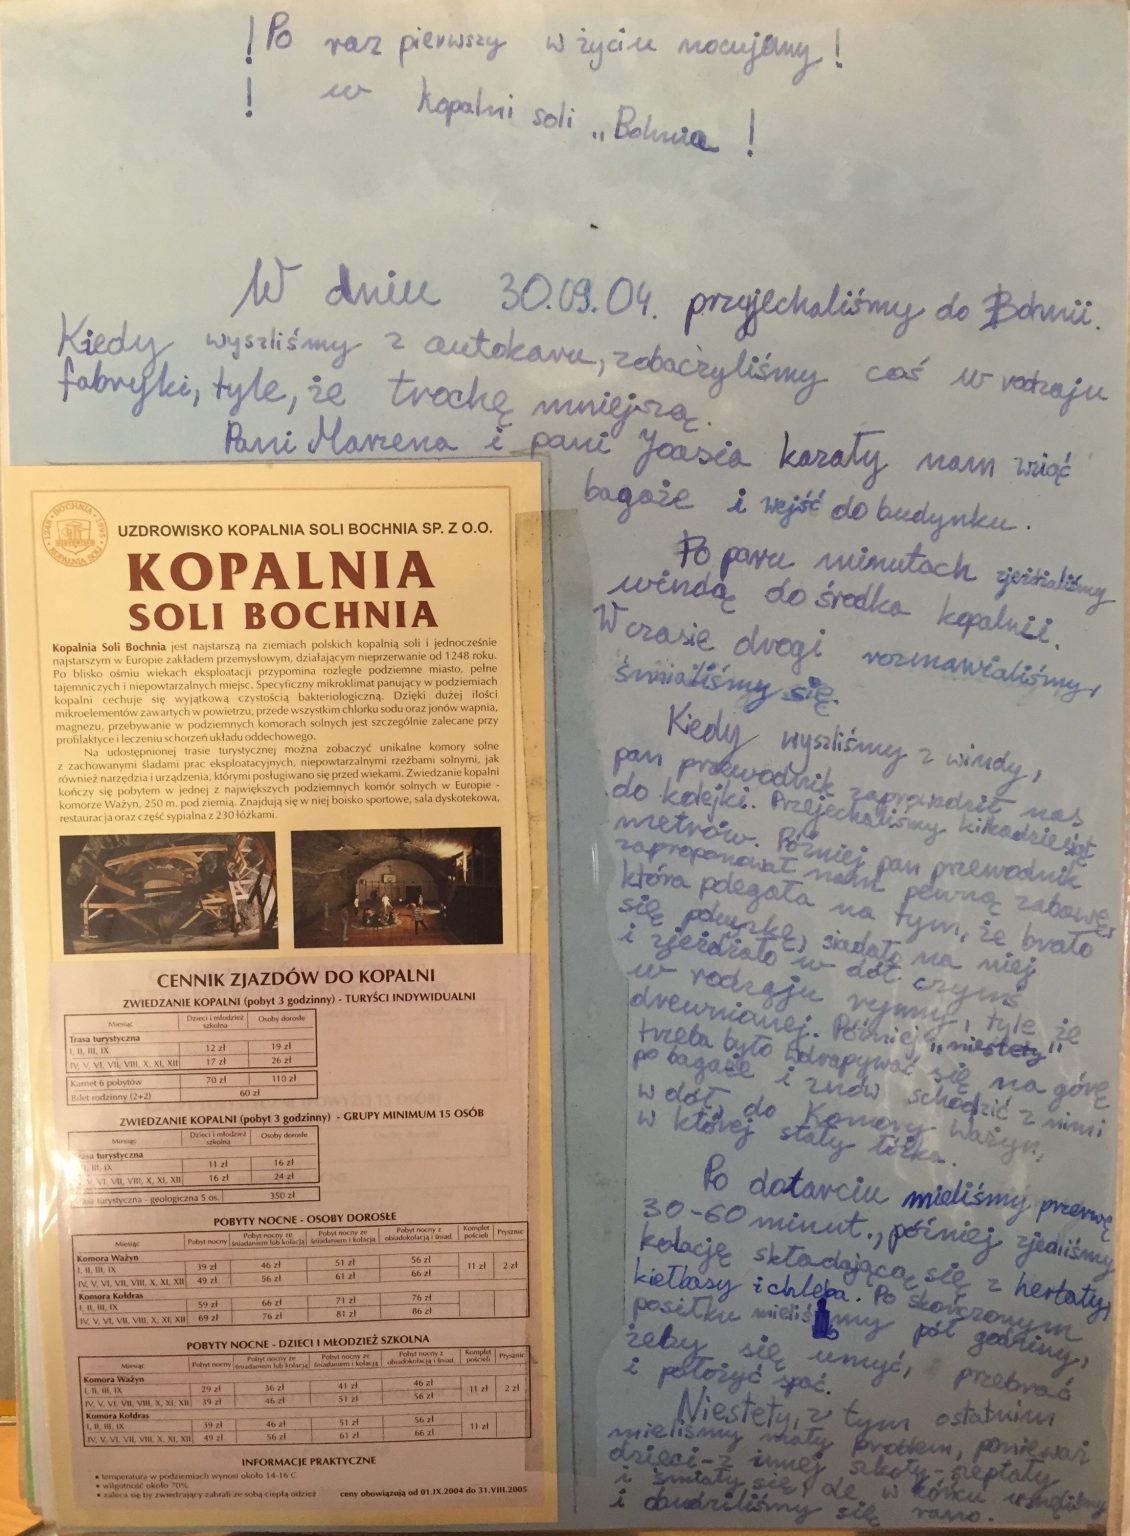 ! Po raz pierwszy w życiu nocujemy !
! w kopalni soli „Bohnia !
W dniu 30.09.04. przyjechaliśmy do Bohnii.
Kiedy wyszliśmy z autokaru, zobaczyliśmy coś w rodzaju
fabryki, tyle, że trochę mniejszą.
Pani Marzena i pani Joasia kazały nam wziąć
bagaże i wejść do budynku.
Po paru minutach zjeżdżaliśmy
windą do środka kopalnii.
W czasie drogi rozmawialiśmy,
śmialiśmy się.
Kiedy wyszliśmy z windy,
pan przewodnik zaprowadził nas
do kolejki. Przejechaliśmy kilkadziesiąt
metrów. Później pan przewodnik
zaproponował nam pewną zabawę,
która polegała na tym, że brało
się poduszkę, siadało na niej
i zjeżdżało w dół czymś
w rodzaju rynny, tyle że
drewnianej. Później „niestety"
trzeba było wdrapywać się na górę
po bagaże i znów schodzić z nimi
w dół do Komory Ważyn,
w której stały łóżka.
Po dotarciu mieliśmy przerwę
30-60 minut., później zjedliśmy
kolację składającą się z herbaty,
kiełbasy i chleba. Po skończonym
posiłku mieliśmy pół godziny,
żeby się umyć, przebrać
i położyć spać.
Niestety, z tym ostatnim
mieliśmy mały problem, ponieważ
dzieci - z innej szkoły - szeptały
i śmiały się, ale w końcu usnęliśmy
i obudziliśmy się rano.
1248 • BOCHNIA • 1995
KOPALNIA SOLI
UZDROWISKO KOPALNIA SOLI BOCHNIA SP. Z O.O.
KOPALNIA
SOLI BOCHNIA
Kopalnia Soli Bochnia jest najstarszą na ziemiach polskich kopalnią soli i jednocześnie
najstarszym w Europie zakładem przemysłowym, działającym nieprzerwanie od 1248 roku.
Po blisko ośmiu wiekach eksploatacji przypomina rozległe podziemne miasto, pełne
tajemniczych i niepowtarzalnych miejsc. Specyficzny mikroklimat panujący w podziemiach
kopalni cechuje się wyjątkową czystością bakteriologiczną. Dzięki dużej ilości
mikroelementów zawartych w powietrzu, przede wszystkim chlorku sodu oraz jonów wapnia,
magnezu, przebywanie w podziemnych komorach solnych jest szczególnie zalecane przy
profilaktyce i leczeniu schorzeń układu oddechowego.
Na udostępnionej trasie turystycznej można zobaczyć unikalne komory solne
z zachowanymi śladami prac eksploatacyjnych, niepowtarzalnymi rzeźbami solnymi, jak
również narzędzia i urządzenia, którymi posługiwano się przed wiekami. Zwiedzanie kopalni
kończy się pobytem w jednej z największych podziemnych komór solnych w Europie -
komorze Ważyn, 250 m. pod ziemią. Znajdują się w niej boisko sportowe, sala dyskotekowa,
restauracja oraz część sypialna z 230 łóżkami.
CENNIK ZJAZDÓW DO KOPALNI
ZWIEDZANIE KOPALNI (pobyt 3 godzinny) - TURYŚCI INDYWIDUALNI
Miesiąc Dzieci i młodzież szkolna Osoby dorosłe
Trasa turystyczna
I, II, III, IX 12 zł 19 zł
IV, V, VI, VII, VIII, X, XI, XII 17 zł 26 zł
Karnet 6 pobytów 70 zł 110 zł
Bilet rodzinny (2+2) 60 zł
ZWIEDZANIE KOPALNI (pobyt 3 godzinny) - GRUPY MINIMUM 15 OSÓB
Miesiąc Dzieci i młodzież szkolna Osoby dorosłe
asa turystyczna
I, III, IX 11 zł 16 zł
V, VI, VII, VIII, X, XI, XII 16 zł 24 zł
asa turystyczna - geologiczna 5 os. 350 zł
POBYTY NOCNE - OSOBY DOROSŁE
Miesiąc Pobyt nocny Pobyt nocny ze śniadaniem lub kolacją Pobyt nocny ze śniadaniem i kolacją Pobyt nocny z obiadokolacją i śniad. Komplet pościeli Prysznic
Komora Ważyn
I, II, III, IX 39 zł 46 zł 51 zł 56 zł 11 zł 2 zł
IV, V, VI, VII, VIII, X, XI, XII 49 zł 56 zł 61 zł 66 zł
Komora Kołdras
I, II, III, IX 59 zł 66 zł 71 zł 76 zł
IV, V, VI, VII, VIII, X, XI, XII 69 zł 76 zł 81 zł 86 zł
POBYTY NOCNE - DZIECI I MŁODZIEŻ SZKOLNA
Miesiąc Pobyt nocny Pobyt nocny ze śniadaniem lub kolacją Pobyt nocny ze śniadaniem i kolacją Pobyt nocny z obiadokolacją i śniad. Komplet pościeli Prysznic
Komora Ważyn
I, II, III, IX 29 zł 36 zł 41 zł 46 zł 11 zł 2 zł
IV, V, VI, VII, VIII, X, XI, XII 39 zł 46 zł 51 zł 56 zł
Komora Kołdras
I, II, III, IX 39 zł 46 zł 51 zł 56 zł 11 zł
IV, V, VI, VII, VIII, X, XI, XII 49 zł 56 zł 61 zł 66 zł
INFORMACJE PRAKTYCZNE
• temperatura w podziemiach wynosi około 14-16 C
• wilgotność około 70%
• zaleca się by zwiedzający zabrali ze sobą ciepłą odzież
ceny obowiązują od 01.IX.2004 do 31.VIII.2005